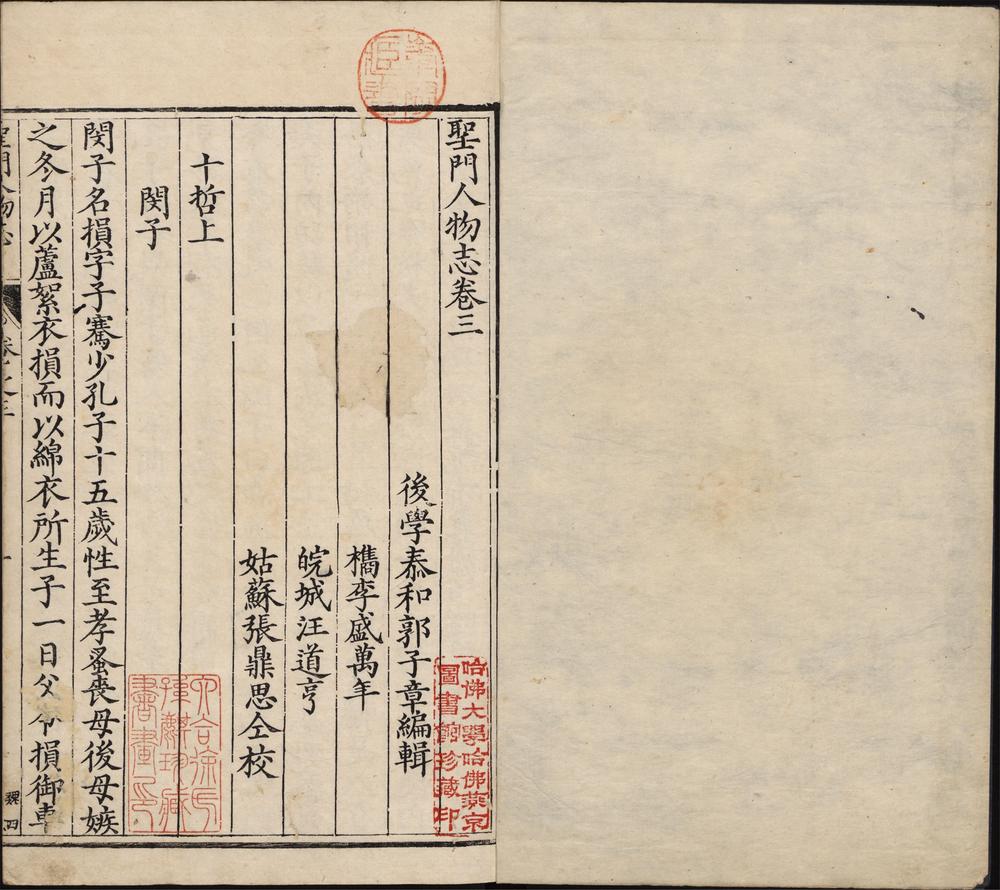 聖門人物志卷三
後學泰和郭子章編輯
檇李盛萬年
皖城汪道亨
姑蘇張鼎思仝校
十哲上
閔子
閔子名損字子騫少孔子十五歲性至孝蚤喪母後母嫉
之冬月以蘆絮衣損而以綿衣所生子一日父令損御車
聖門人物志
卷之三
一
哈佛大學哈佛燕京圖書館珍藏印